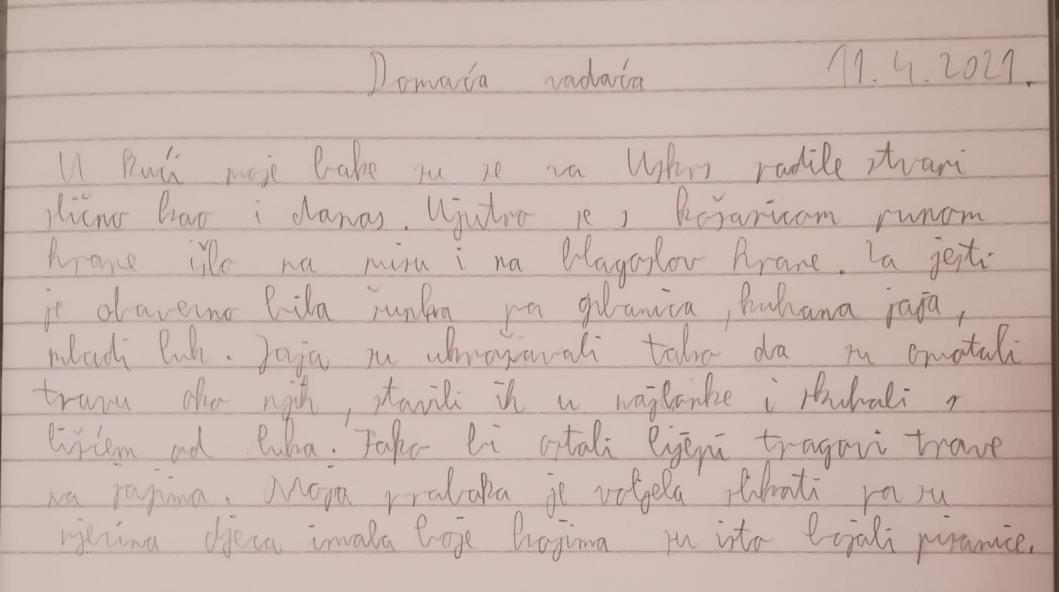 Domaća zadaća 11.4.2021.
U kući moje bake su se za Uskrs radile stvari
slično kao i danas. Ujutro se s košaricom punom
hrane išlo na misu i na blagoslov hrane. Za jesti
je obavezno bila šunka pa gibanica, kuhana jaja,
mladi luk. Jaja su ukrašavali tako da su omotali
travu oko njih, stavili ih u najlonke i skuhali s
lišćem od luka. Tako bi ostali lijepi tragovi trave
na jajima. Moja prabaka je voljela slikati pa su
njezina djeca imala boje kojima su isto bojali pisanice.